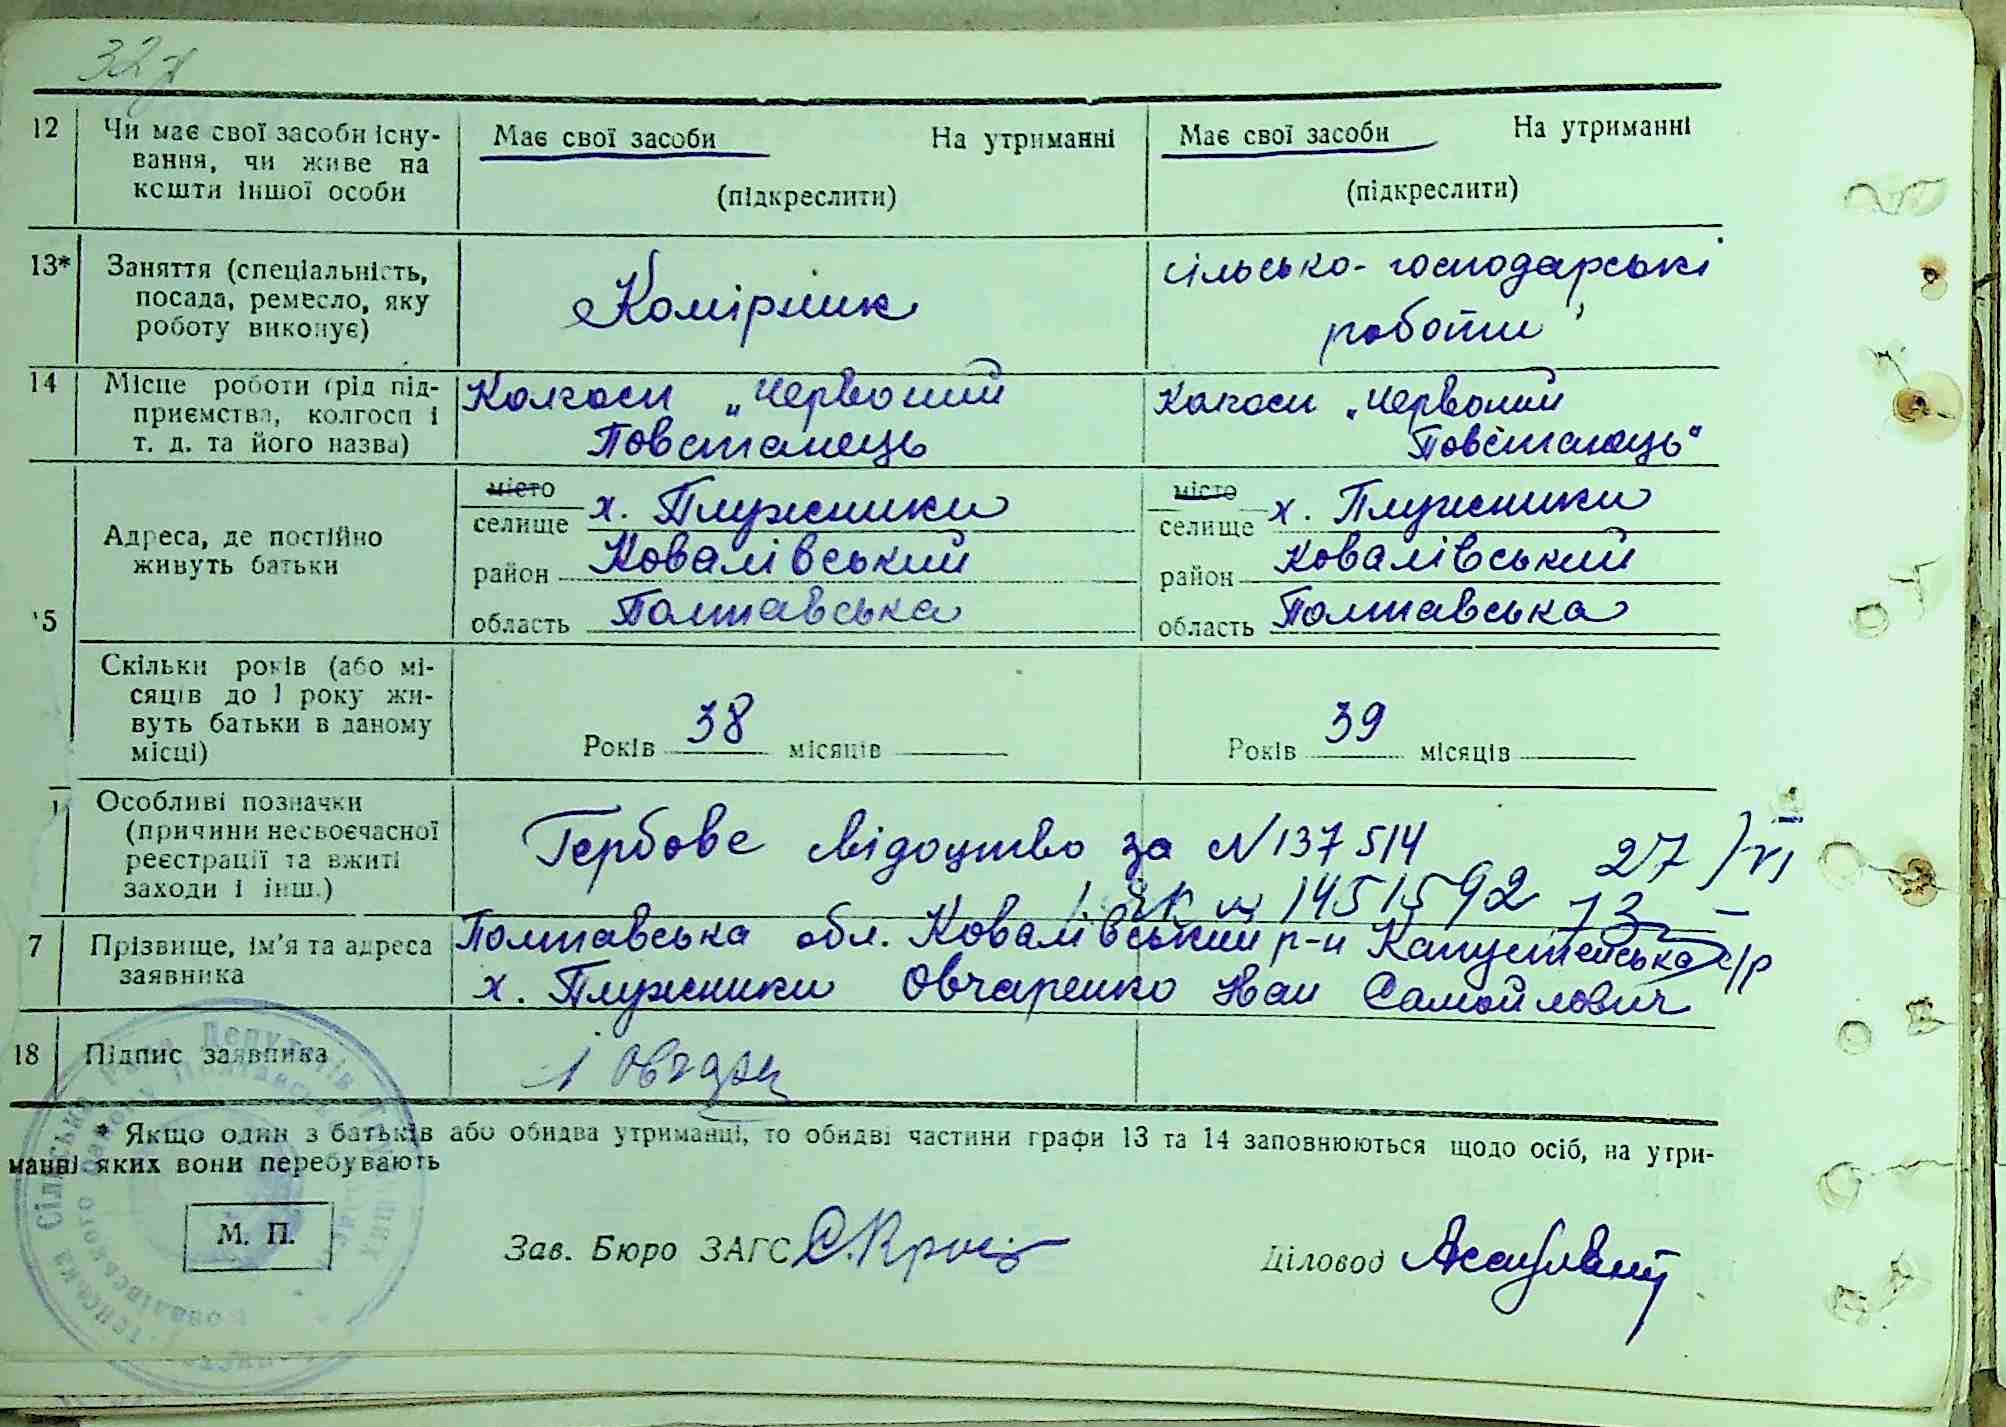 32
12 Чи має свої засоби існу-
вання, чи живе на
кошти іншої особи
Має свої засоби На утриманні
(підкреслити)
Має свої засоби На утриманні
(підкреслити)
13* Заняття (спеціальність,
посада, ремесло, яку
роботу виконує)
Комірник
сільсько-господарські
роботи
14 Місце роботи (рід під-
приємства, колгосп і
т. д. та його назва)
Колгосп „Червоний
Повстанець
Колгосп „Червоний
Повстанець"
5 Адреса, де постійно
живуть батьки
місто
селище х. Плужники
район Ковалівський
область Полтавська
місто
селище х. Плужники
район Ковалівський
область Полтавська
Скільки років (або мі-
сяців до 1 року жи-
вуть батьки в даному
місці)
Років 38 місяців
Років 39 місяців
Особливі позначки
(причини несвоєчасної
реєстрації та вжиті
заходи і інш.)
Гербове свідоцтво за N 137514
1451592 27/VI
73
7 Прізвище, ім'я та адреса
заявника
Полтавська обл. Ковалівський р-н Капустенська с/р
х. Плужники Овчаренко Іван Самойлович
18 Підпис заявника
* Якщо один з батьків або обидва утриманці, то обидві частини графи 13 та 14 заповнюються щодо осіб, на утри-
манні яких вони перебувають
М. П.
Зав. Бюро ЗАГС
Діловод